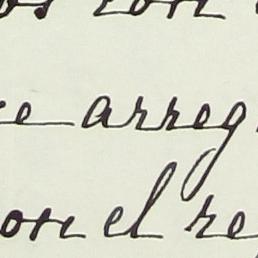 os con
e arreg
on el re